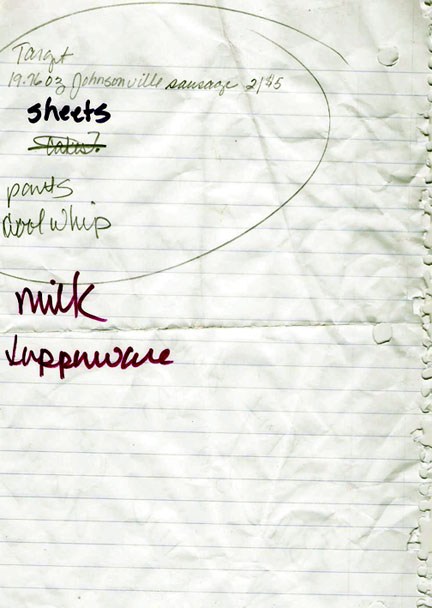 Target
19.76 oz Johnsonville sausage 2/$5
sheets
pants
cool whip
milk
tupperware